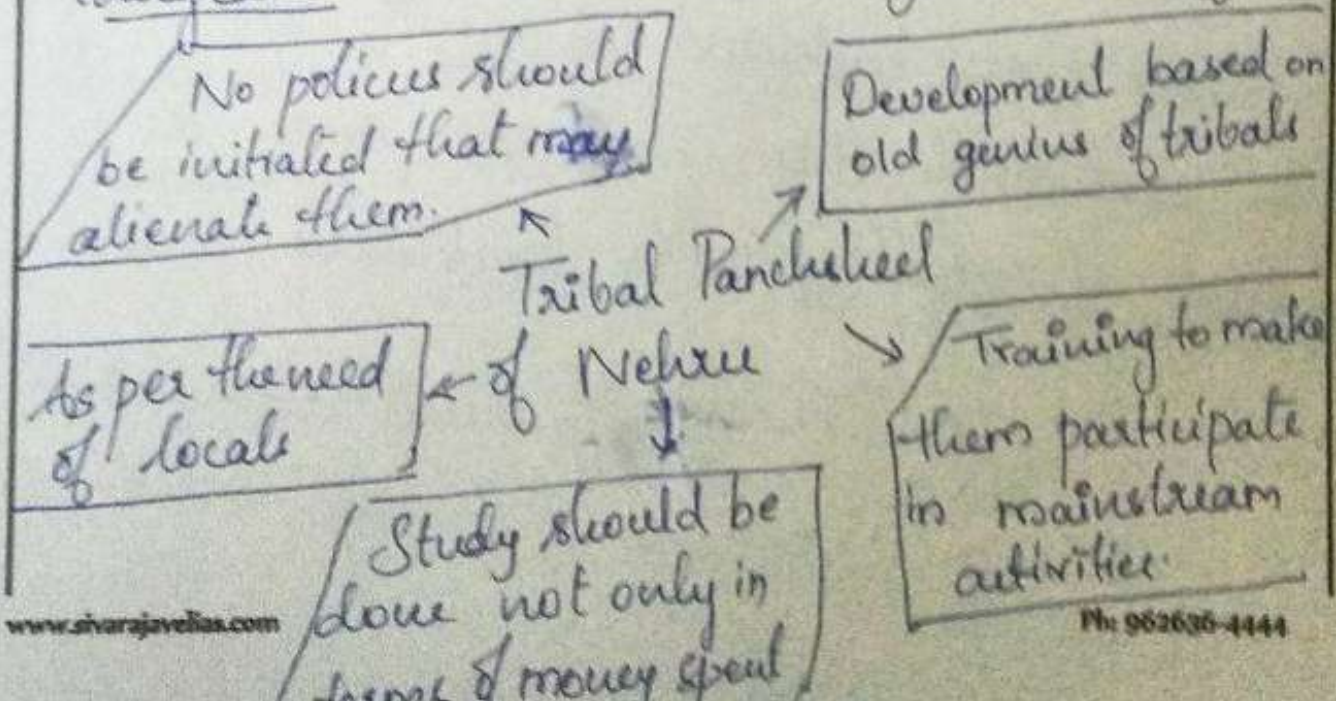 No policies should
be initiated that may
alienate them.
Development based on
old genius of tribals
Tribal Panchsheel
of Nehru
As per the need
of locals
Training to make
them participate
in mainstream
activities.
Study should be
done not only in
terms of money spent
www.sivarajavelias.com
Ph: 962636-4444